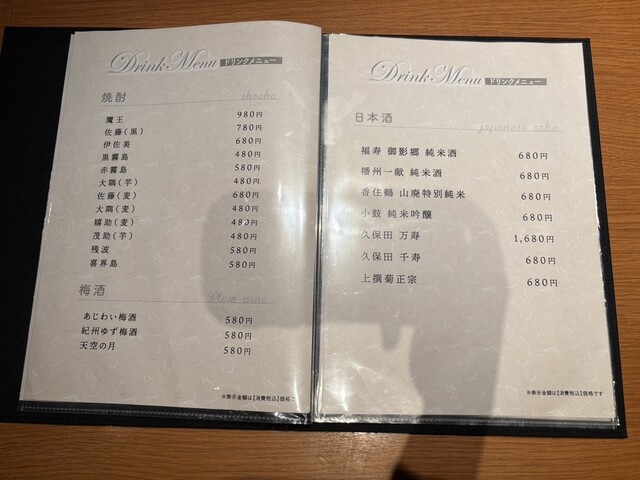 Drink Menu ドリンクメニュー
焼酎 shochu
魔王 980円
佐藤(黒) 780円
伊佐美 680円
黒霧島 480円
赤霧島 580円
大隅(芋) 480円
佐藤(麦) 680円
大隅(麦) 480円
嬉助(麦) 580円
茂助(芋) 480円
残波 580円
喜界島 580円
梅酒 Plum wine
あじわい梅酒 580円
紀州ゆず梅酒 580円
天空の月 580円
※表示金額は【消費税込】価格で
Drink Menu ドリンクメニュー
日本酒 japanese sake
福寿 御影郷 純米酒 680円
播州一献 純米酒 680円
香住鶴 山廃特別純米 680円
小鼓 純米吟醸 680円
久保田 万寿 1,680円
久保田 千寿 680円
上撰菊正宗 680円
※表示金額は【消費税込】価格です